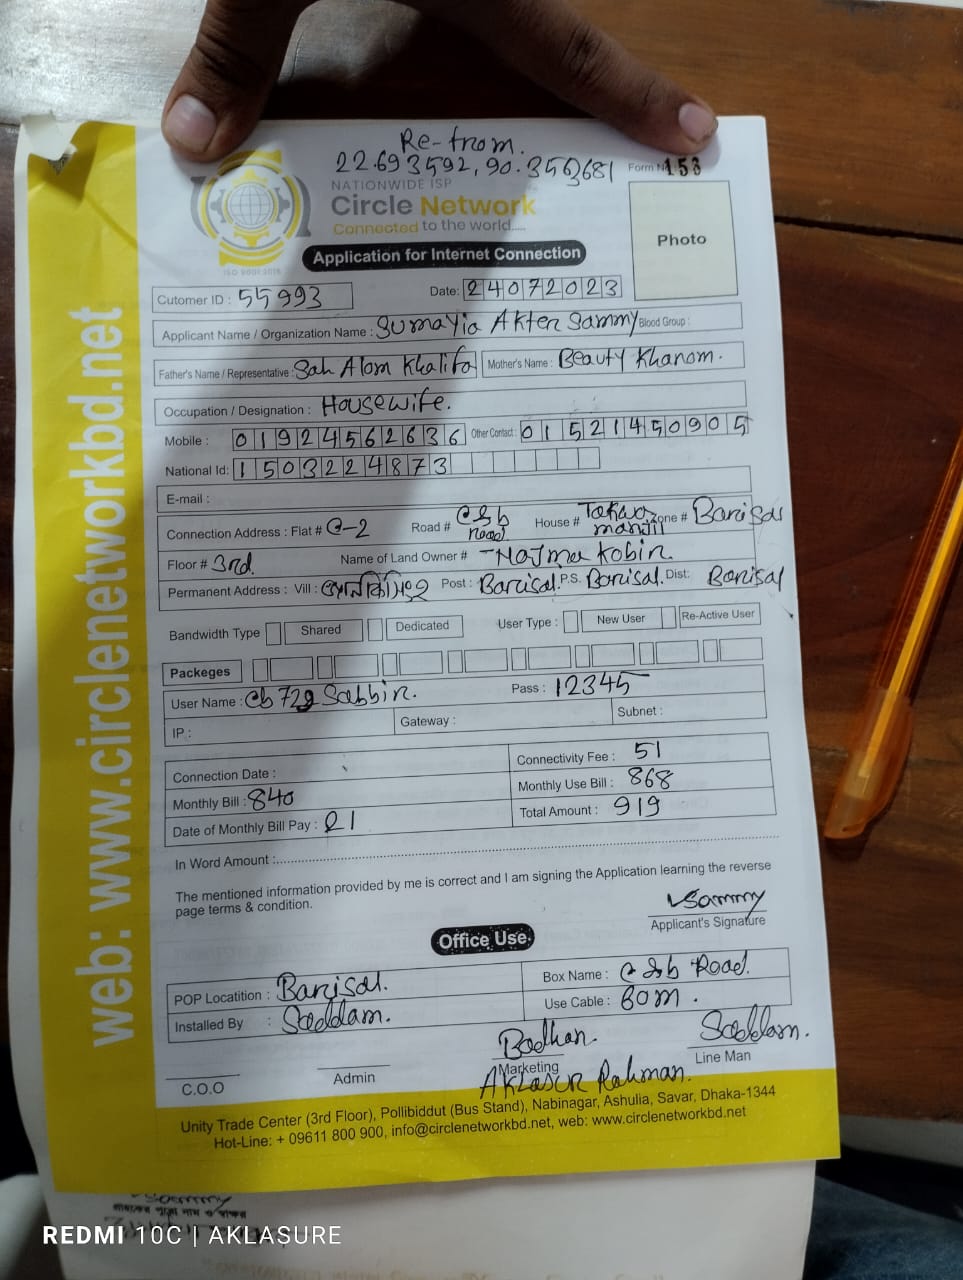 Re-from.
22.693592, 90.353681
Form No 153
NATIONWIDE ISP
Circle Network
Connected to the world.....
ISO 9001:2015
Application for Internet Connection
Photo
Cutomer ID : 55993 Date: 24072023
Applicant Name / Organization Name : Sumayia Akter Sammy Blood Group :
Father's Name / Representative : Sah Alom Khalifa Mother's Name : Beauty Khanom.
Occupation / Designation : Housewife.
Mobile : 01924562636 Other Contact: 01521450905
National Id: 1503224873
E-mail :
Connection Address : Flat # C-2 Road # C&b Road House # Zone # Barisal
Floor # 3rd. Name of Land Owner # Najma Kobir.
Permanent Address : Vill : Post : Barisal. P.S. Barisal. Dist: Barisal
Bandwidth Type Shared Dedicated User Type : New User Re-Active User
Packeges
User Name : Cb729 Sabbir. Pass : 12345
IP : Gateway : Subnet :
Connection Date : Connectivity Fee : 51
Monthly Bill : 840 Monthly Use Bill : 868
Date of Monthly Bill Pay : Total Amount : 919
In Word Amount :
The mentioned information provided by me is correct and I am signing the Application learning the reverse
page terms & condition.
Sammy
Applicant's Signature
Office Use
POP Locatition : Barisal. Box Name : C&b Road.
Installed By : Saddam. Use Cable : 60m.
Badhan. Saddam.
C.O.O Admin Marketing Line Man
Aklasur Rahman.
Unity Trade Center (3rd Floor), Pollibiddut (Bus Stand), Nabinagar, Ashulia, Savar, Dhaka-1344
Hot-Line: + 09611 800 900, info@circlenetworkbd.net, web: www.circlenetworkbd.net
web: www.circlenetworkbd.net
Sammy
গ্রাহকের পুরো নাম ও স্বাক্ষর
REDMI 10C | AKLASURE